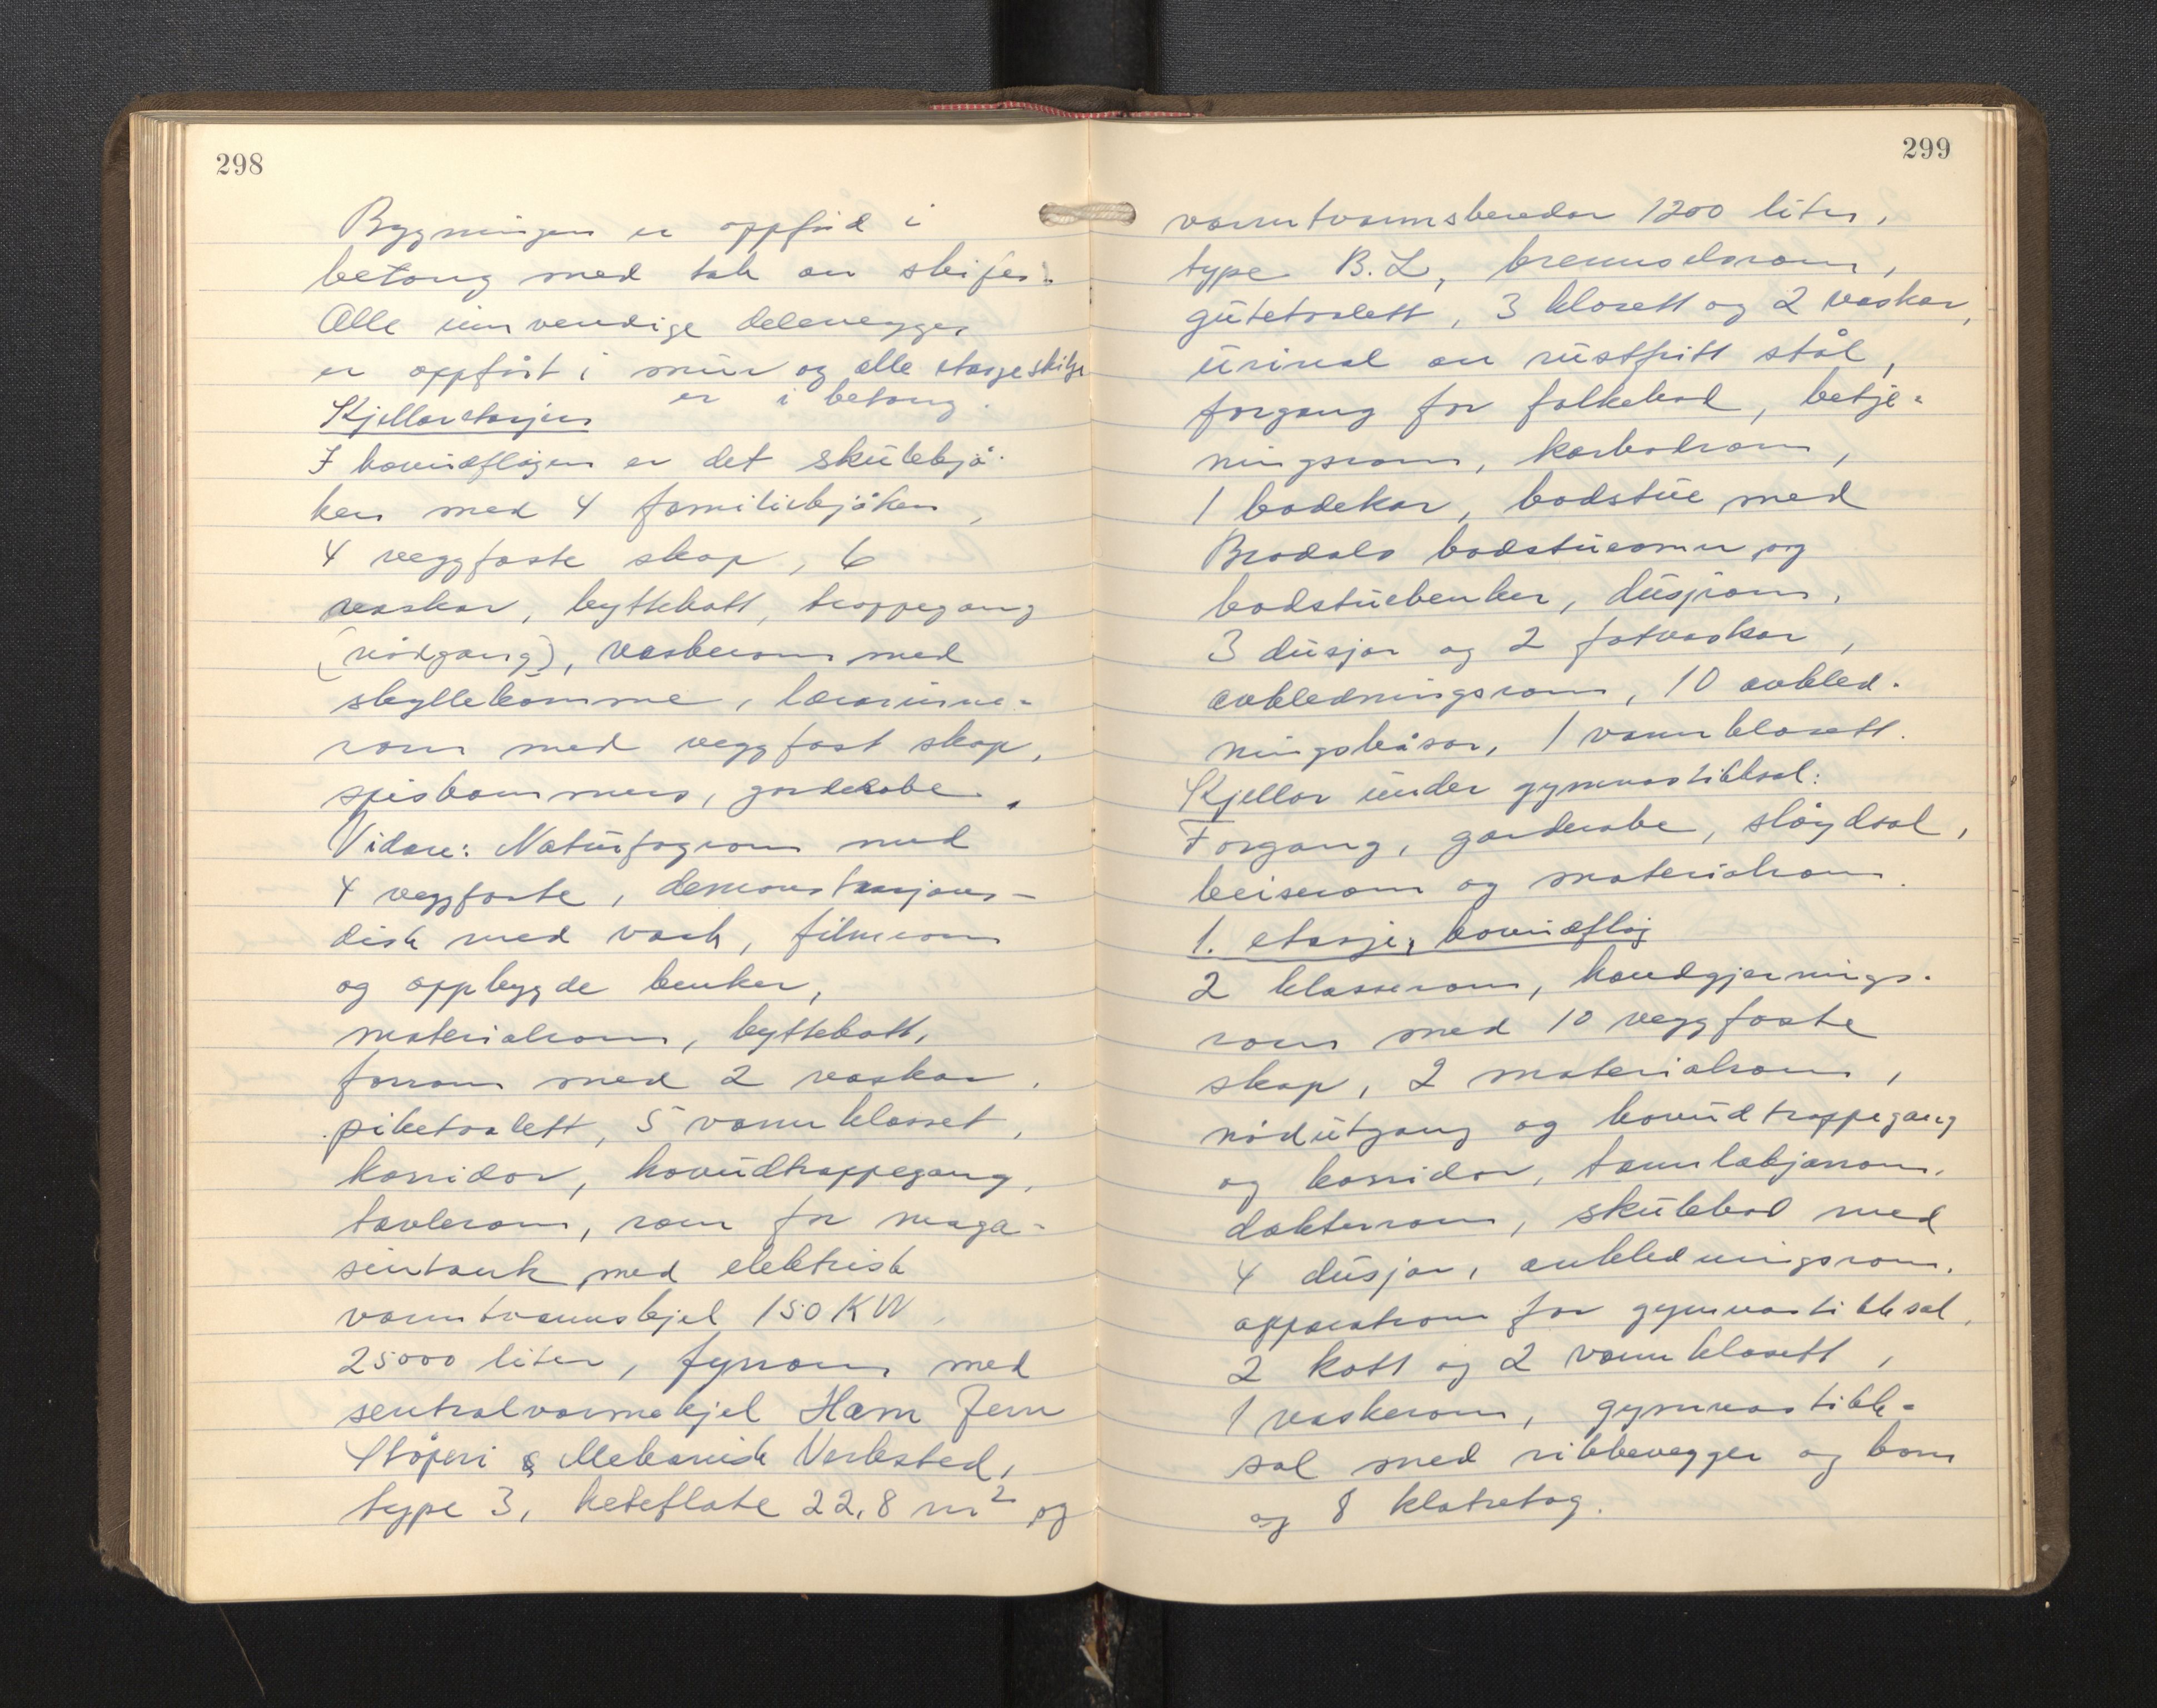 298
Bygningen er oppført i
betong med tak av skifer.
Alle innvendige delevegger
er oppført i mur og alle etasjeskilje
er i betong.
Kjelleretasjen
I hovudfløyen er det skulekjø-
ken med 4 familiekjøken,
4 veggfaste skap, 6
vaskar, byttekott, trappegang
(nødgang), vaskerom med
skyllekomme, lærarinne-
rom med veggfast skap,
spiskammers, garderobe.
Vidare: Naturfagrom med
4 veggfaste, demonstrasjons-
disk med vask, filmrom
og oppbygde benker,
materialrom, byttekott,
forrom med 2 vaskar,
piketoalett, 5 vannklosset,
korridor, hovudtrappegang,
tavlerom, rom for maga-
sintank med elektrisk
varmtvannskjel 150 KW,
25000 liter, fyrrom med
sentralvarmekjel Ham Jern
Støperi & Mekanisk Verksted,
type 3, heteflate 22,8 m² og
299
varmtvannsbereder 1200 liter,
type B.L, brennselsrom,
gutetoalett, 3 klosett og 2 vaskar,
urinal av rustfritt stål,
forgang for folkebad, betje-
ningsrom, karbadrom,
1 badekar, badstue med
Brodals badstueomn og
badstuebenker, dusjrom,
3 dusjar og 2 fotvaskar,
avkledningsrom, 10 avkled-
ningsbåsar, 1 vannklosett.
Kjellar under gymnastikksal:
Forgang, garderobe, sløydsal,
beiserom og materialrom.
1. etasje, hovudfløy
2 klasserom, handgjernings-
rom med 10 veggfaste
skap, 2 materialrom,
nødutgang og hovudtrappegang
og korridor, tannlækjarrom,
dokterrom, skulebad med
4 dusjar, avkledningsrom,
apparatrom for gymnastikksal,
2 kott og 2 vannklosett,
1 vaskerom, gymnastikk-
sal med ribbevegger og bom
og 8 klatretog.